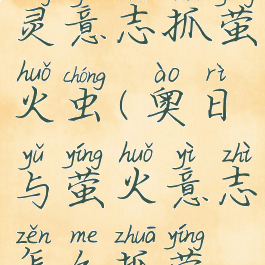 灵意志抓萤
huǒ chóng ào rì
火虫(奥日
yǔ yíng huǒ yì zhì
与萤火意志
zěn me zhuā yíng
怎么抓萤